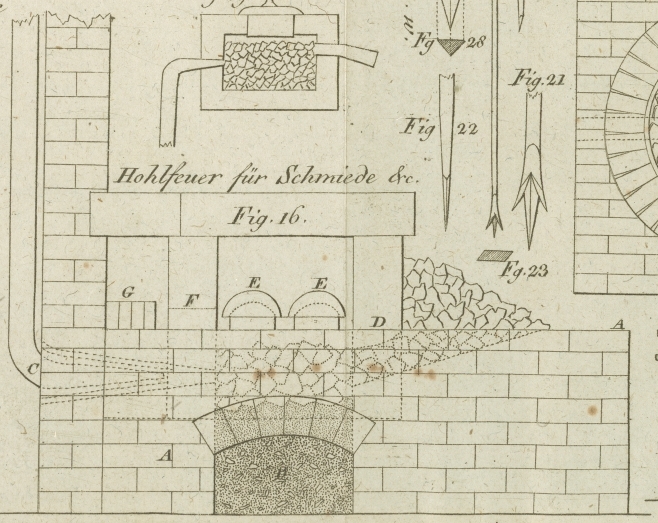 Fg 28
Fig. 21
Fig 22
Hohlfeuer für Schmiede &c.
Fig. 16.
Fg. 23
E E
G
F
D
A
C
A
B